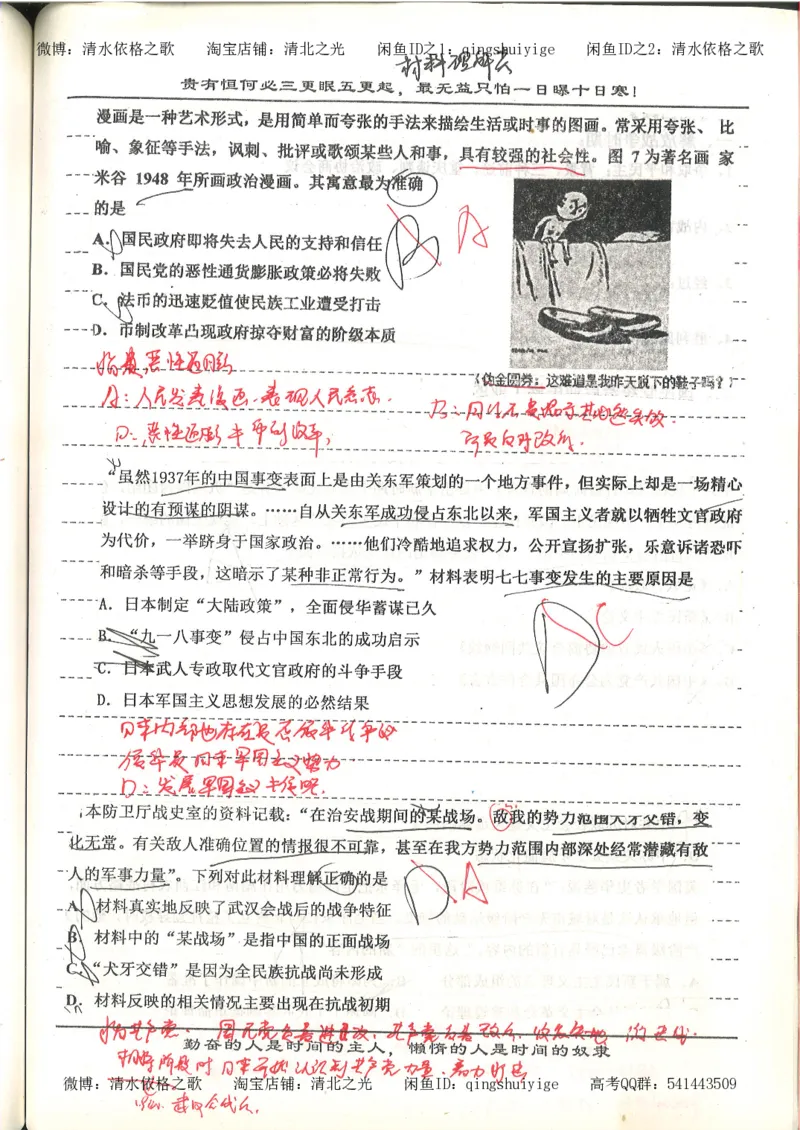 微博：清水依格之歌 淘宝店铺：清北之光 闲鱼ID之1：qingshuiyige 闲鱼ID之2：清水依格之歌
材料理解
贵有恒何必三更眠五更起，最无益只怕一日曝十日寒！
漫画是一种艺术形式，是用简单而夸张的手法来描绘生活或时事的图画。常采用夸张、比
喻、象征等手法，讽刺、批评或歌颂某些人和事，具有较强的社会性。图 7 为著名画 家
米谷 1948 年所画政治漫画。其寓意最为准确
的是
B A
A．国民政府即将失去人民的支持和信任
B．国民党的恶性通货膨胀政策必将失败
C．法币的迅速贬值使民族工业遭受打击
D．币制改革凸现政府掠夺财富的阶级本质
（伪金圆券：这难道是我昨天脱下的鞋子吗？）
A：人民发表漫画，表现人民态度．
“虽然1937年的中国事变表面上是由关东军策划的一个地方事件，但实际上却是一场精心
设计的有预谋的阴谋。……自从关东军成功侵占东北以来，军国主义者就以牺牲文官政府
为代价，一举跻身于国家政治。……他们冷酷地追求权力，公开宣扬扩张，乐意诉诸恐吓
和暗杀等手段，这暗示了某种非正常行为。”材料表明七七事变发生的主要原因是
A．日本制定“大陆政策”，全面侵华蓄谋已久
B．“九一八事变”侵占中国东北的成功启示
C．日本武人专政取代文官政府的斗争手段
D．日本军国主义思想发展的必然结果
D C
本防卫厅战史室的资料记载：“在治安战期间的某战场。敌我的势力范围犬牙交错，变
化无常。有关敌人准确位置的情报很不可靠，甚至在我方势力范围内部深处经常潜藏有敌
人的军事力量”。下列对此材料理解正确的是
D A
A．材料真实地反映了武汉会战后的战争特征
B．材料中的“某战场”是指中国的正面战场
C．“犬牙交错”是因为全民族抗战尚未形成
D．材料反映的相关情况主要出现在抗战初期
勤奋的人是时间的主人，懒惰的人是时间的奴隶
微博：清水依格之歌 淘宝店铺：清北之光 闲鱼ID：qingshuiyige 高考QQ群：541443509